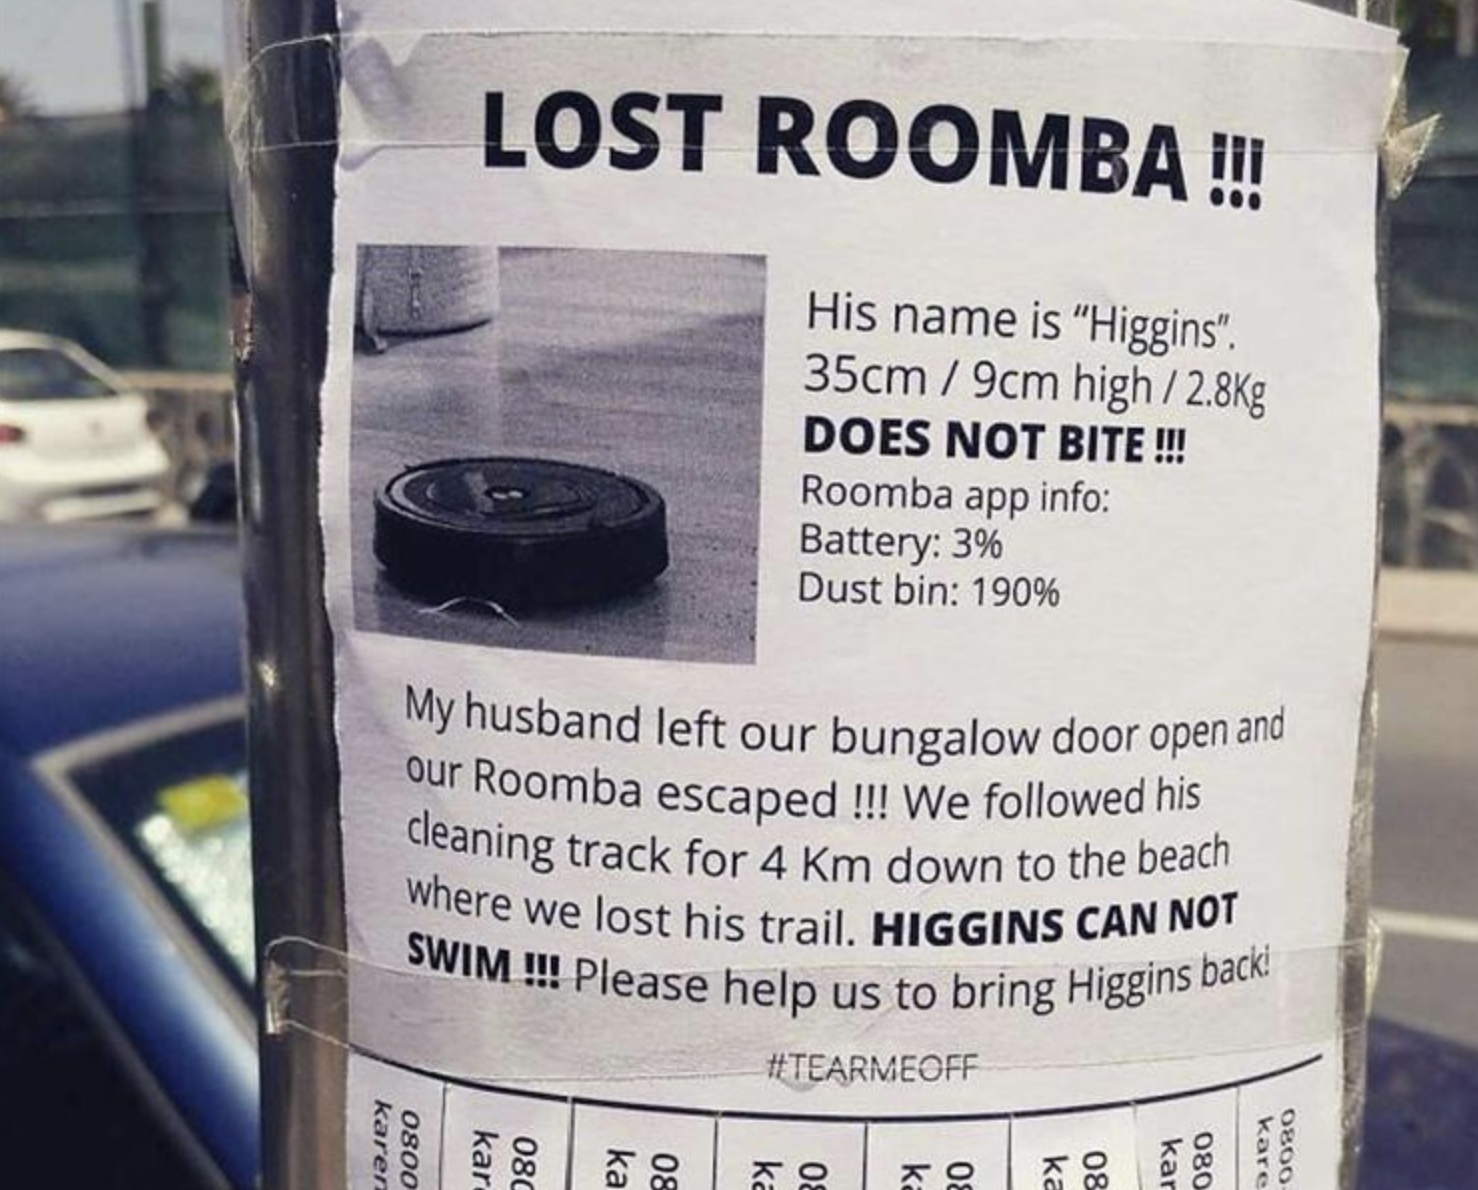 LOST ROOMBA !!!
His name is “Higgins”.
35cm / 9cm high / 2.8Kg
DOES NOT BITE !!!
Roomba app info:
Battery: 3%
Dust bin: 190%
My husband left our bungalow door open and
our Roomba escaped !!! We followed his
cleaning track for 4 Km down to the beach
where we lost his trail. HIGGINS CAN NOT
SWIM !!! Please help us to bring Higgins back!
#TEARMEOFF
0800
karen
080
kar
08
ka
08
ka
08
ka
08
ka
080
kar
0800
kare